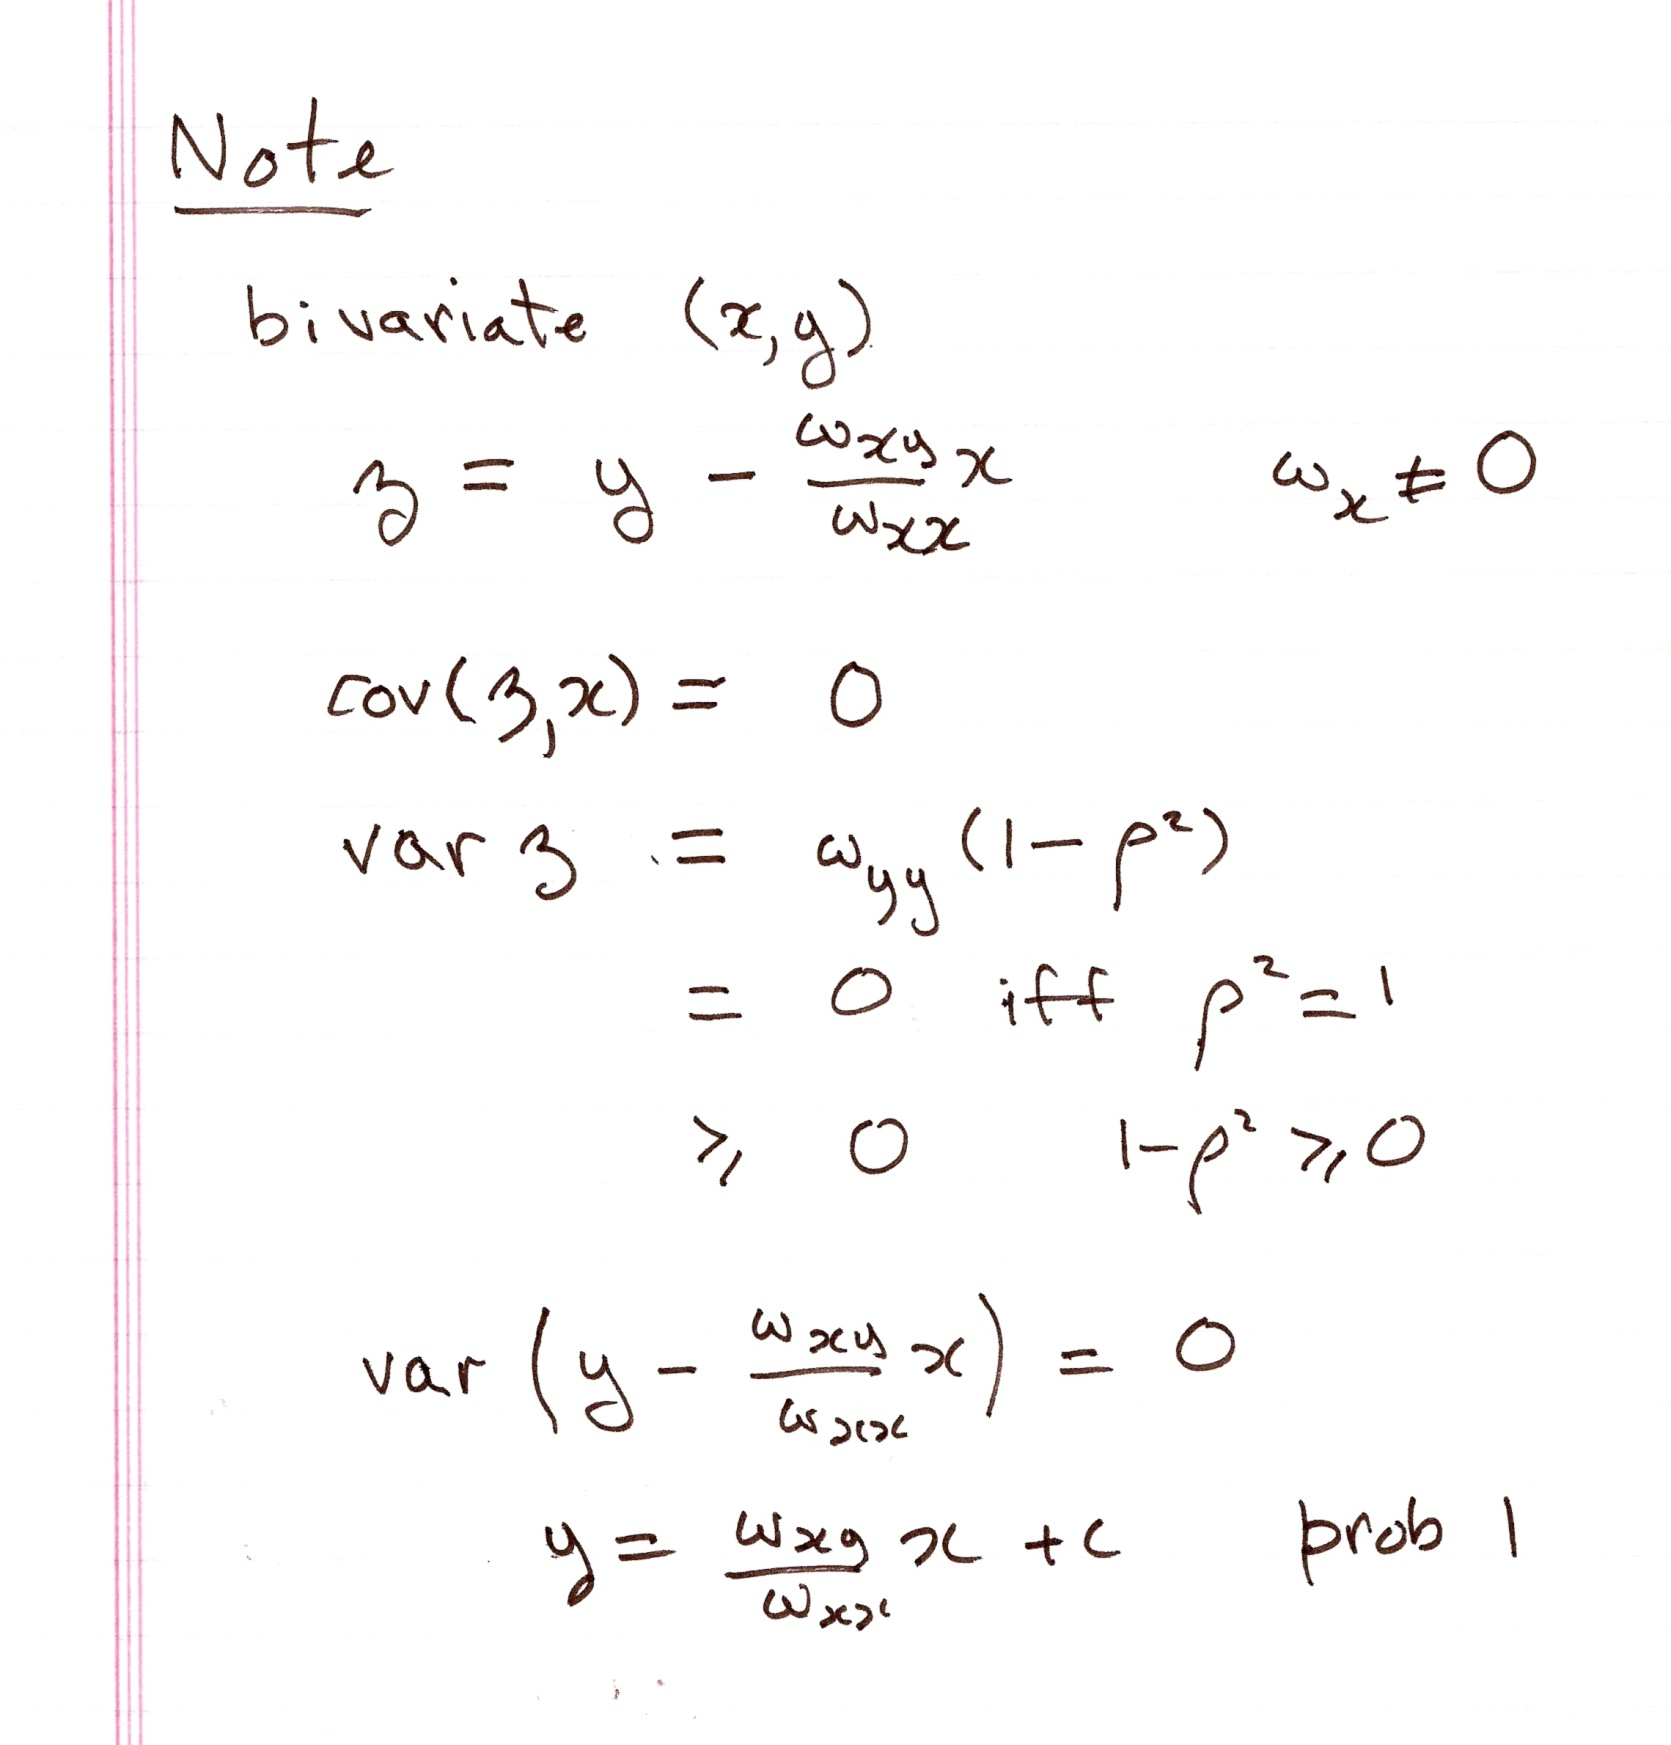 Note
bivariate (x,y)
z = y - ω_xy/ω_xx x    ω_x ≠ 0
cov(z,x) = 0
var z = ω_yy (1-ρ²)
= 0 iff ρ² = 1
⩾ 0    1-ρ² ⩾ 0
var (y - ω_xy/ω_xx x) = 0
y = ω_xy/ω_xx x + c    prob 1